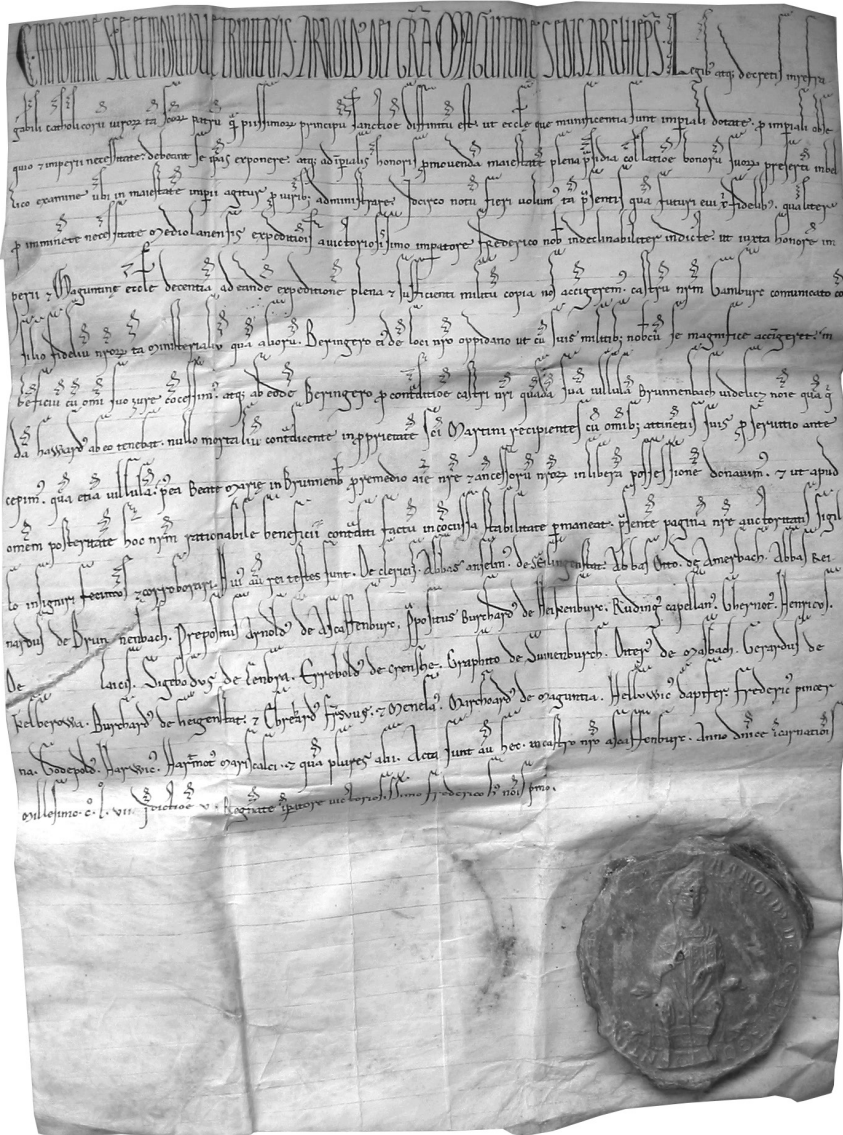 C. IN NOMINE SCE ET INDIVIDUE TRINITATIS. ARNOLD' DEI GRA MAGUNTINE SEDIS ARCHIEPS. Legib' atq; decretis inrefra
gabili catholicoru virorum ta scorum patru q piissimorum principu sanctioe diffinitu est. ut eccle que munificentia sunt impiali dotate. p impiali obse
quio & imperii necessitate. debeant se ipas exponere. atq; ad ipialis honoris pmovenda maiestate plena psidia collatioe bonoru suorum preserti in bel
lico examine ubi in maiestate imperii agitur p virib; administrare. Idcirco notu fieri volum' ta psentis qua futuri evi fidelib; qualiter
p imminete necessitate Mediolanensis expeditiois a victoriosissimo impatore Frederico nob indeclinabiliter indicte. ut iuxta honore im
perii & Maguntine eccle decentia ad eande expeditione plena & sufficienti militu copia nos accigerem'. castru nrm Gamburc comunicato co
silio fideliu nrorum ta ministerialiu qua alioru. Beringero eide loci nro oppidano ut cu suis militib; nobcu se magnifice accigeret. in
beneficiu cu omi suo iure cocessim'. atq; ab eode Beringero p coditioe castri nri quada sua villula Brunnenbach videlicet noie qua q
da haward' ab eo tenebat. nullo mortaliu contdicente in pprietate sci Martini recipientes cu omib; attinetiis suis p scriptto ante
cepim'. qua etia villula. pea Beate Marie in Brunnenb p remedio aie nre & ancessoru nrorum in libera possessione donavim'. & ut apud
omem posteritate hoc nrm rationabile beneficii contditi factu incocussa stabilitate pmaneat. psente pagina nre auctoritatis sigil
lo insigniri fecimus & corroborari. Hui' au rei testes sunt. De clericis. Abbas anselm'. de Selingenstat. Abbas Otto. de Amerbach. Abbas Rei
nardus de Brunnenbach. Prepositus Arnold' de Ascaffenburc. Ppositus Burchard' de Heikenburc. Ruding' capellan'. Gbernot'. Henricus.
De laicis. Sigebodus de Lenbra. Errebold' de crenshe. Graphtto de Suinenburch. Otter' de Masbach. Gerardus de
kelberowa. Burchard' de heigenstat. & Ebrehard' fr suus. & Menelaus. Marchoard' de maguntia. Hellowic' dapifer. Frederic' pincer
na. Godepold'. Harwic'. Harmot' mariscalci. & qua plures alii. Acta sunt au hec. in castro nro ascaffenburc. Anno dnice icarnatiois
millesimo. c. l. vii. Indictioe v. Regnate ipatore victoriosissimo Frederico h' nois pmo.
ARNOLD' D